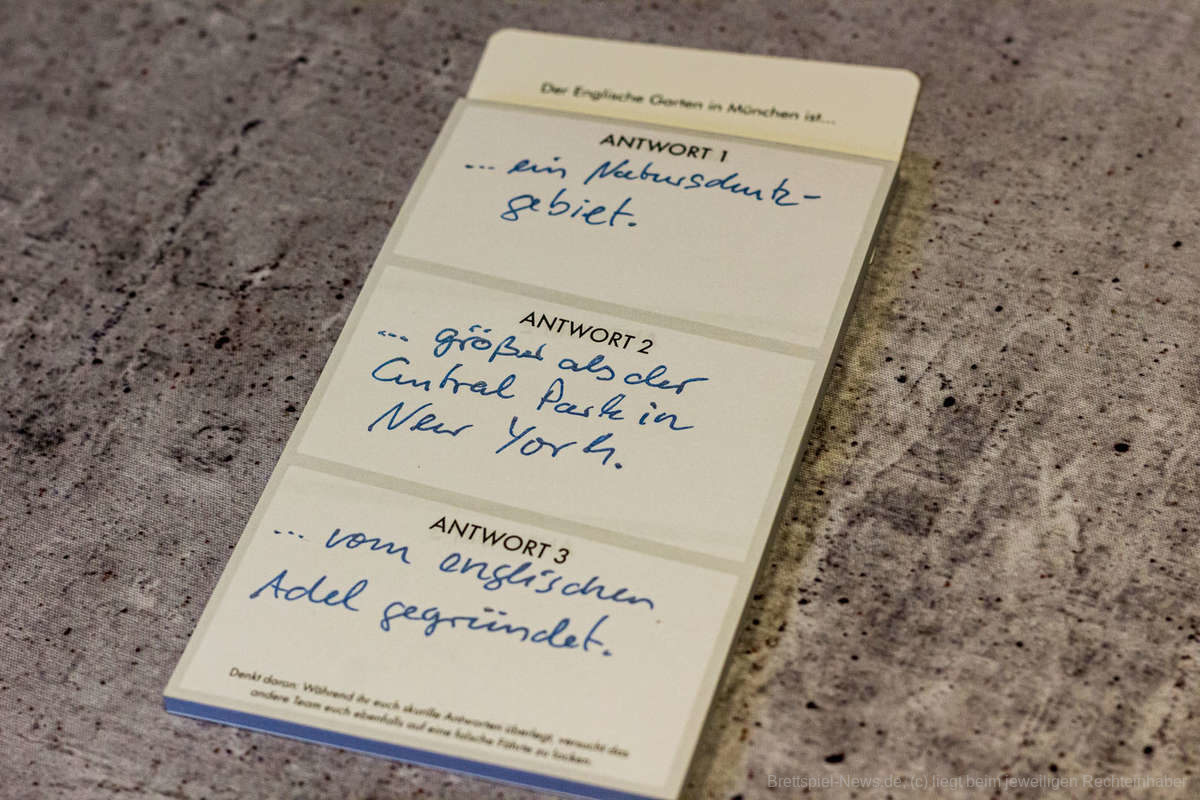 Der Englische Garten in München ist...
ANTWORT 1
... ein Naturschutz-
gebiet.
ANTWORT 2
... größer als der
Central Park in
New York.
ANTWORT 3
... vom englischen
Adel gegründet.
Denkt daran: Während ihr euch skurille Antworten überlegt, versucht das
andere Team euch ebenfalls auf eine falsche Fährte zu locken.
Brettspiel-News.de, (c) liegt beim jeweiligen Rechteinhaber